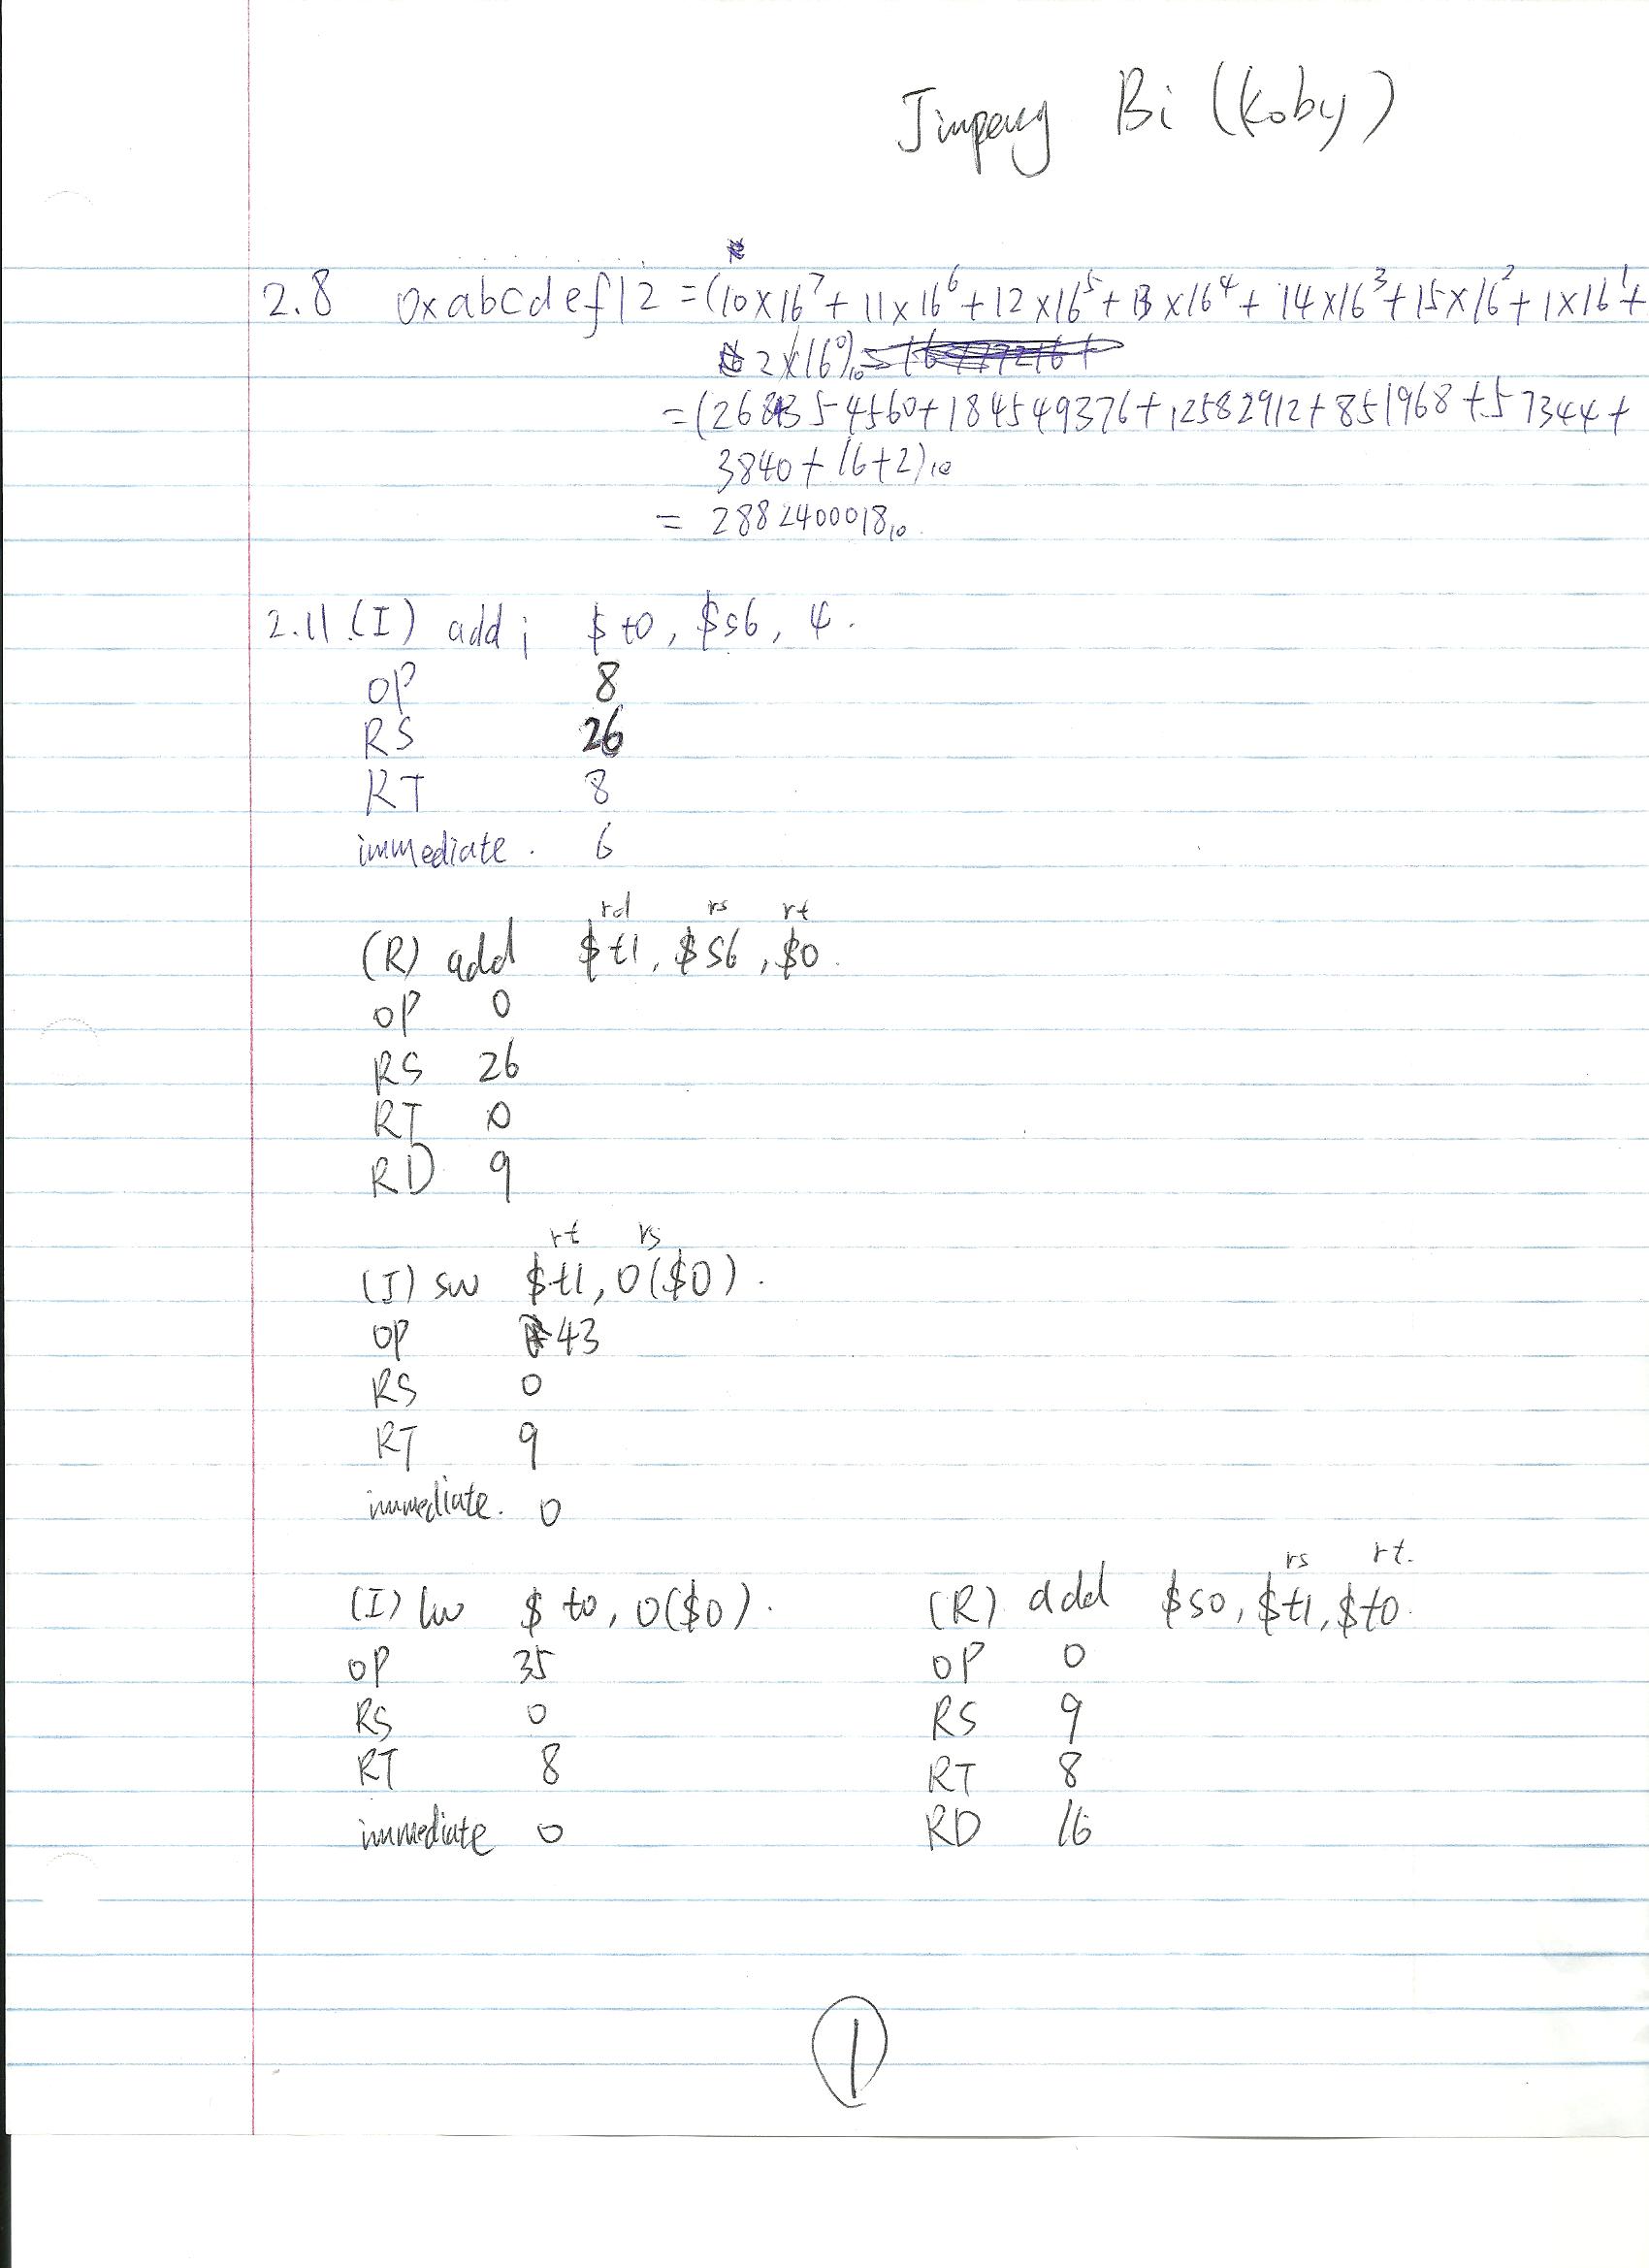 Jinpeng Bi (koby)
2.8 0xabcdef12 = (10×16⁷ + 11×16⁶ + 12×16⁵ + 13×16⁴ + 14×16³ + 15×16² + 1×16¹ +
2×16⁰)₁₀
= (2684354560 + 184549376 + 12582912 + 851968 + 57344 +
3840 + 16 + 2)₁₀
= 2882400018₁₀.
2.11 (I) addi $t0, $s6, 4.
OP 8
RS 26
RT 8
immediate. 6
rd rs rt
(R) add $t1, $s6, $0.
OP 0
RS 26
RT 0
RD 9
rt rs
(I) sw $t1, 0($0).
OP 43
RS 0
RT 9
immediate. 0
(I) lw $t0, 0($0).
OP 35
RS 0
RT 8
immediate 0
rs rt.
(R) add $s0, $t1, $t0.
OP 0
RS 9
RT 8
RD 16
1